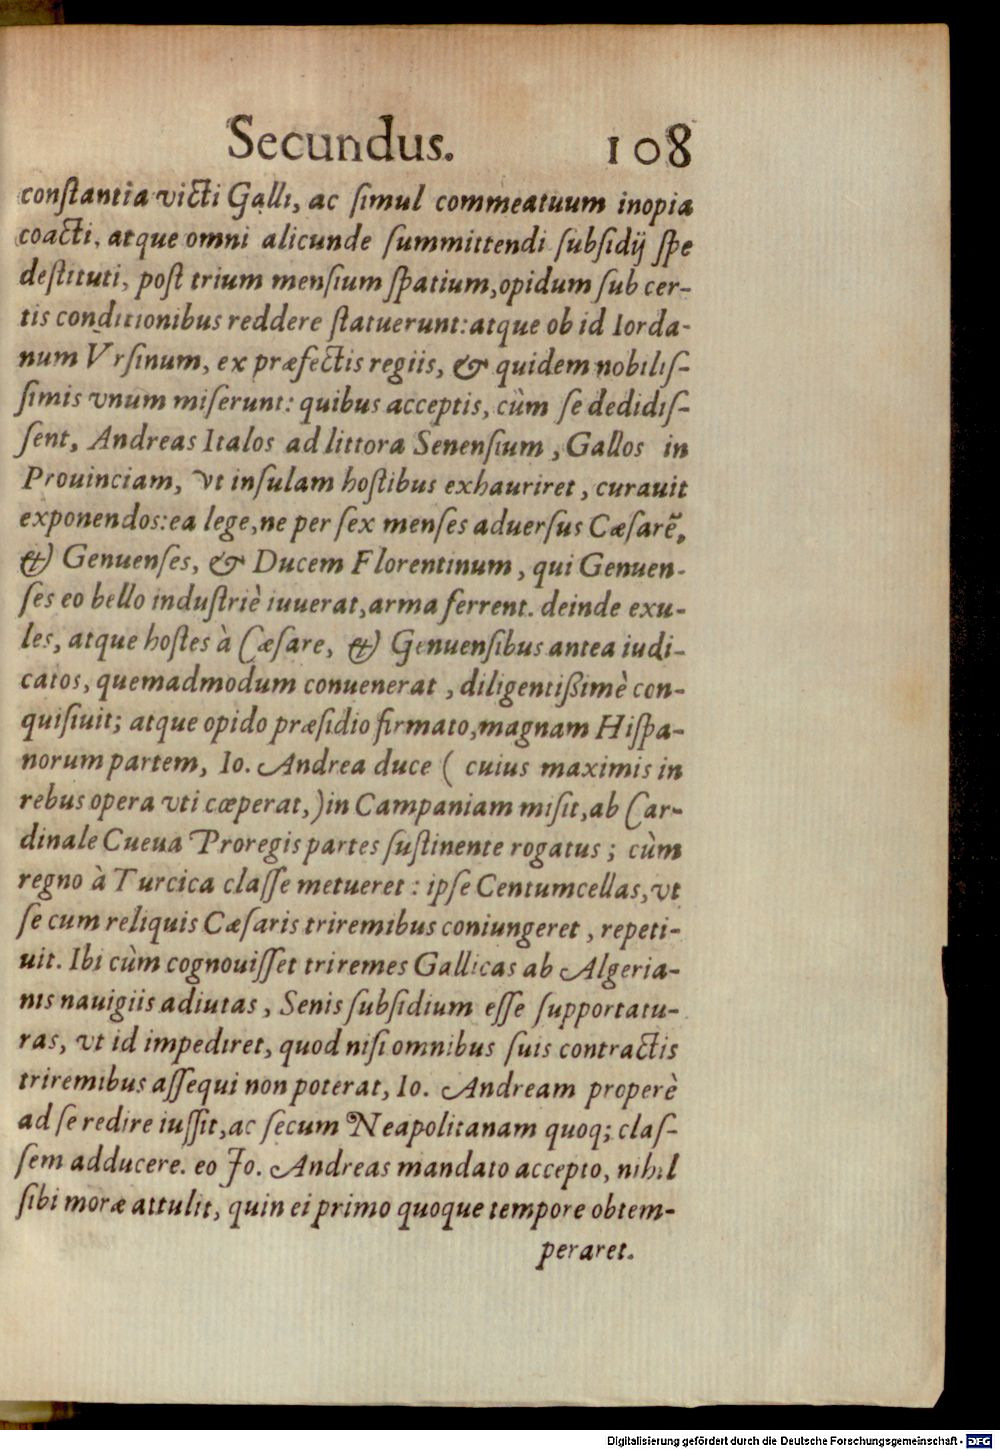 Secundus. 108
conſtantia victi Galli, ac ſimul commeatuum inopia
coacti, atque omni alicunde ſummittendi ſubſidij ſpe
deſtituti, poſt trium menſium ſpatium, opidum ſub cer-
tis conditionibus reddere ſtatuerunt: atque ob id Iorda-
num Vrſinum, ex præfectis regiis, & quidem nobiliſ-
ſimis vnum miſerunt: quibus acceptis, cùm ſe dedidiſ-
ſent, Andreas Italos ad littora Senenſium, Gallos in
Prouinciam, vt inſulam hoſtibus exhauriret, curauit
exponendos: ea lege, ne per ſex menſes aduerſus Cæſarē,
& Genuenſes, & Ducem Florentinum, qui Genuen-
ſes eo bello induſtriè iuuerat, arma ferrent. deinde exu-
les, atque hoſtes à Cæſare, & Genuenſibus antea iudi-
catos, quemadmodum conuenerat, diligentißimè con-
quiſiuit; atque opido præſidio firmato, magnam Hiſpa-
norum partem, Io. Andrea duce ( cuius maximis in
rebus opera vti cœperat,) in Campaniam miſit, ab Car-
dinale Cueua Proregis partes ſuſtinente rogatus; cùm
regno à Turcica claſſe metueret: ipſe Centumcellas, vt
ſe cum reliquis Cæſaris triremibus coniungeret, repeti-
uit. Ibi cùm cognouiſſet triremes Gallicas ab Algeria-
nis nauigiis adiutas, Senis ſubſidium eſſe ſupportatu-
ras, vt id impediret, quod niſi omnibus ſuis contractis
triremibus aſſequi non poterat, Io. Andream properè
ad ſe redire iuſſit, ac ſecum Neapolitanam quoq; claſ-
ſem adducere. eo Io. Andreas mandato accepto, nihil
ſibi moræ attulit, quin ei primo quoque tempore obtem-
peraret.
Digitalisierung gefördert durch die Deutsche Forschungsgemeinschaft - DFG